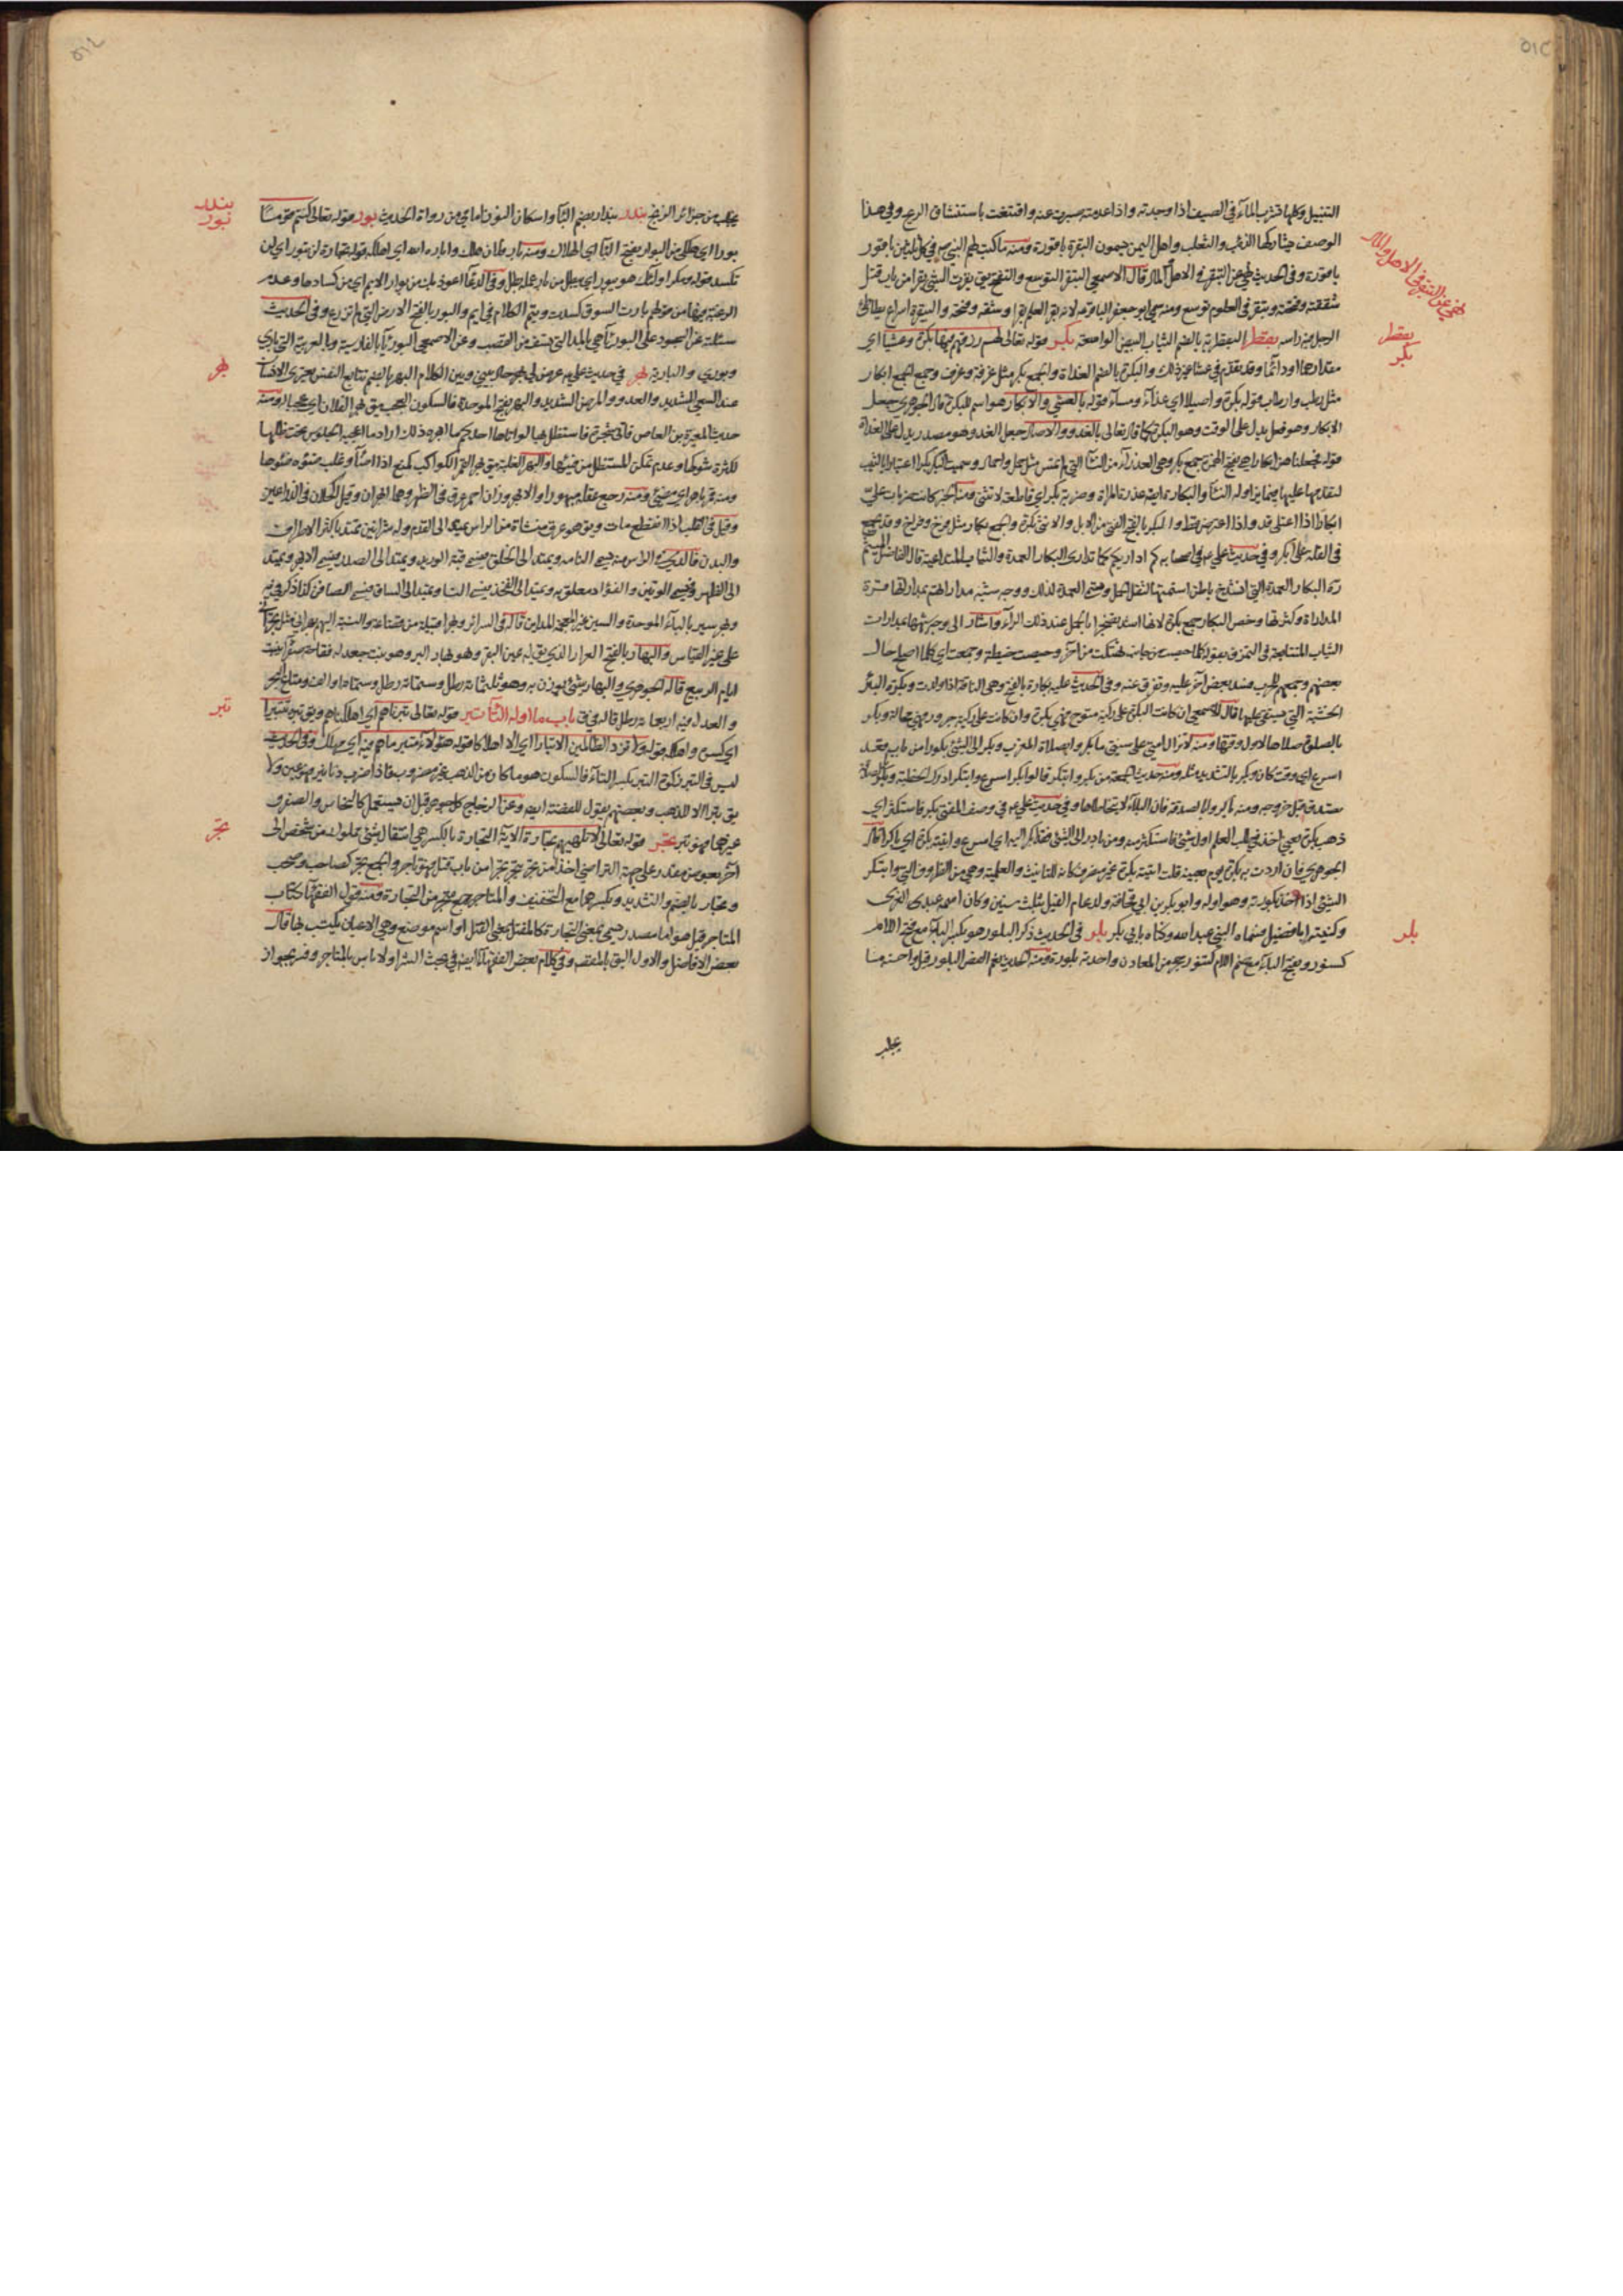 الثيتل وكلها تشرب الماء في الصيف اذا وجدته واذا عدمته صبرت عنه واقتنعت باستنشاق الريح وفي هذا
الوصف يشاركها الذئب والثعلب واهل اليمن يسمون البقرة باقورة ومنه ما كتب لهم النبي ص في كل ثلثين باقور
باقورة وفي الحديث نهى عن التبقر في الاهل والمال قال الاصمعي التبقر التوسع والتفتح يق بقرت الشيء بقرا من باب قتل
شققته وفتحته وتبقر في العلوم توسع ومنه سمي ابو جعفر الباقر ع لانه بقر العلم بقرا وشقه وفتحه والبيقرة اسراع يطاطئ
الرجل فيه راسه بقطر البقطرية بالضم الثياب البيض الواسعة بكر قوله تعالى لهم رزقهم فيها بكرة وعشيا اي
مقدارها او دائما وقد تقدم في عشا غير ذلك والبكرة بالضم الغداة والجمع بكر مثل غرفة وغرف وجمع الجمع ابكار
مثل رطب وارطاب قوله بكرة واصيلا اي غداء ومساء قوله بالعشي والابكار هو اسم للبكرة قال الجوهري جعل
الابكار وهو فعل يدل على الوقت وهو البكرة كما قال تعالى بالغدو والاصال جعل الغدو وهو مصدر يدل على الغداة
قوله فجعلناهن ابكارا هي بفتح الهمزة جمع بكر وهي العذراء من النساء التي لم تمس مثل حمل واحمال وسميت البكر بكرا اعتبارا بالثيب
لتقدمها عليها فيما يراد له النساء والبكارة ايضا عذرة المراة وضربة بكر اي قاطعة لا تثنى ومنه الخبر كانت ضربات علي
ابكارا اذا اعتلى قد واذا اعترض قط والبكر بالفتح الفتي من الابل والانثى بكرة والجمع بكار مثل فرخ وفراخ وقد يجمع
في القلة على ابكر وفي حديث علي ع في اصحابه كم اداريكم كما تدارى البكار العمدة والثياب المتداعية قال الفاضل الميثم
ره البكار العمدة التي انشدخ باطن اسنمتها لثقل الحمل وسمي العمدة لذلك ووجه شبه مداراتهم بمداراتها قوة
المداراة وكثرتها وخص البكار جمع بكرة لانها اشد تضجرا بالحمل عند ذلك الراء واشار الى وجه شبهها بمدارات
الثياب المتتابعة في التمزق بقوله كلما حيصت من جانب تهتكت من اخر وحيصت خيطت وجمعت اي كلما اصلح حال
بعضهم وجمعهم للحرب فسد بعض اخر عليه وتفرق عنه وفي الحديث عليه بكارة بالفتح وهي الناقة اذا ولدت وبكرة البئر
الخشبة التي يستقى عليها قال الاصمعي ان كانت البكرة على ركية متوح فهي بكرة وان كانت على ركية جرور فهي محالة وبكر
بالصلوة صلاها لاول وقتها ومنه لا تزال امتي على سنتي ما بكروا بصلاة المغرب وبكر الى الشيء بكورا من باب قعد
اسرع اي وقت كان وبكر بالتشديد مثله ومنه حديث الجمعة من بكر وابتكر قالوا بكر اسرع وابتكر ادرك الخطبة وبكر بالصلاة
صدقة قبل خروجه ومنه باكروا بالصدقة فان البلاء لا يتخطاها وفي حديث علي ع في وصف المفتي بكر فاستكثر اي
ذهب بكرة يعني اخذ في طلب العلم اول شيء فاستكثر منه ومن بادر الى الشيء فقد بكر اليه اي اسرع واتيته بكرة اي باكرا قال
الجوهري فان اردت به بكرة يوم بعينه قلت اتيته بكرة غير مصروف كانه للتانيث والعلمية وهي من الظروف التي وابتكر
الشيء اذا اخذ بكورته وهو اوله وابو بكر بن ابي قحافة ولد عام الفيل بثلث سنين وكان اسمه عبد العزى
وكنيته ابا فضيل فسماه النبي عبد الله وكناه بابي بكر بلر في الحديث ذكر البلور هو بكسر الباء مع فتح اللام
كسنور وبفتح الباء مع ضم اللام كتنور حجر من المعادن واحدته بلورة ومنه الحديث نعم الفص البلور قيل واحسنه ما
يجلب
نهى عن التبقر في الاهل والمال
بقطر
بكر
بلر
يجلب من جزائر الزنج بندر بندار بضم الباء واسكان النون امامي من رواة الحديث بور قوله تعالى كنتم قوما
بورا اي هلكى من البوار بفتح الباء اي الهلاك ومنه بار فلان هلك واباره الله اي اهلكه قوله تجارة لن تبور اي لن
تكسد قوله ومكر اولئك هو يبور اي يبطل من بار عمله بطل وفي الدعاء اعوذ بك من بوار الايم اي من كسادها وعدم
الرغبة فيها من قولهم بارت السوق كسدت ويتم الكلام في ايم والبور بالفتح الارض التي لم تزرع وفي الحديث
سئلته عن السجود على البورياء هي بالمد التي تسف من القصب وعن الاصمعي البورياء بالفارسية وبالعربية التي باري
وبوري والبارية بهر في حديث علي ع عرض لي بهر حال بيني وبين الكلام البهر بالضم تتابع النفس يعتري الانسان
عند السعي الشديد والعدو والمرض الشديد والبهر بفتح الموحدة فالسكون العجب يق بهرا لفلان اي عجبا له ومنه
حديث المغيرة بن العاص فاتى شجرة فاستظل بها لو اتاها احدكم ما ابهره ذلك اراد ما اعجبه الجلوس تحت ظلها
لكثرة شوكها وعدم تمكن المستظل من فيئها والبهر الغلبة يق بهر القمر الكواكب كمنع اذا اضاء وغلب ضوءه ضوءها
ومنه قمر باهر اي مضيء ومنه رجع عقله مبهورا والابهر وزان احمر عرق في الظهر وهما ابهران وقيل الكحلان في الذراعين
وقيل في القلب اذا انقطع مات ويق هو عرق منشاة من الراس يمتد الى القدم وله شرائين تتصل باكثر الاطراف
والبدن فالذي في الراس منه يسمى النامة ويمتد الى الحلق فيسمى فيه الوريد ويمتد الى الصدر فيسمى الابهر ويمتد
الى الظهر فيسمى الوتين والفؤاد معلق به ويمتد الى الفخذ فيسمى النسا ويمتد الى الساق فيسمى الصافن كذا ذكر في يه
وبهر سير بالباء الموحدة والسين غير المعجمة المداين قاله في السرائر وبهرا قبيلة من قضاعة والنسبة اليهم بهراني مثل بحراني
على غير القياس والبهار بالفتح العرار الذي يق له عين البقر وهو بهار البر وهو نبت جعد له فقاحة صفراء ينبت
ايام الربيع قاله الجوهري والبهار شيء يوزن به وهو ثلثمائة رطل وستمائة رطل وستمائة والف ومتاع البحر
والعدل فيه اربعمائة رطل قاله في ق باب ما اوله التاء تبر قوله تعالى تبرناهم اي اهلكناهم ويق تبره تتبيرا
اي كسره واهلكه قوله ولا تزد الظالمين الا تبارا اي الا هلاكا قوله هؤلاء متبر ما هم فيه اي مهلك وفي الحديث
ليس في التبر زكوة التبر بكسر التاء فالسكون هو ما كان من الذهب غير مضروب فاذا ضرب دنانير فهو عين ولا
يق تبر الا للذهب وبعضهم يقول للفضة ايض وعن الزجاج كل جوهر قبل ان يستعمل كالنحاس والصفر و
غيرهما فهو تبر تجر قوله تعالى لا تلهيهم تجارة الاية التجارة بالكسر هي انتقال شيء مملوك من شخص الى
اخر بعوض مقدر على جهة التراضي اخذا من تجر يتجر تجرا من باب قتل فهو تاجر والجمع تجر كصاحب وصحب
وتجار بالضم والتشديد وبكسرهما مع التخفيف والمتاجر جمع متجر من التجارة ومنه قول الفقهاء كتاب
المتاجر قيل هو اما مصدر ميمي بمعنى التجارة كالمقتل بمعنى القتل او اسم موضع وهي الاعيان يكتسب بها قال
بعض الافاضل والاول اليق بالمقصد وفي كلام بعض الفقهاء ايض في بحث الشراء ولا باس بالمتاجر وفسر بجواز
بندر
بور
بهر
تبر
تجر